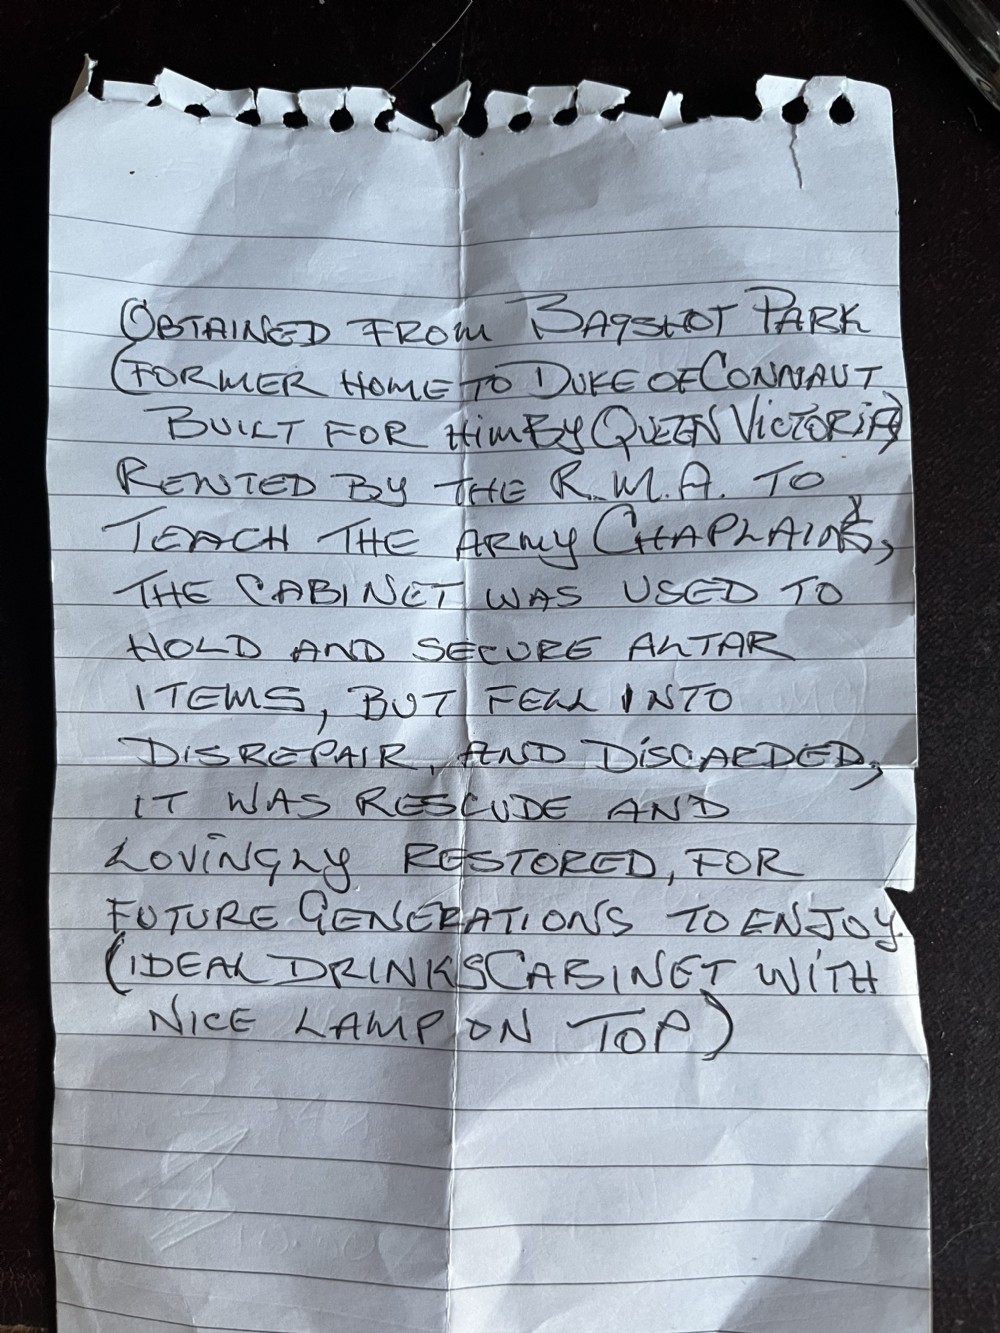 OBTAINED FROM BAGSHOT PARK
(FORMER HOME TO DUKE OF CONNAUT
BUILT FOR HIM BY QUEEN VICTORIA)
RENTED BY THE R.M.A. TO
TEACH THE ARMY CHAPLAINS,
THE CABINET WAS USED TO
HOLD AND SECURE ALTAR
ITEMS, BUT FELL INTO
DISREPAIR, AND DISCARDED,
IT WAS RESCUDE AND
LOVINGLY RESTORED, FOR
FUTURE GENERATIONS TO ENJOY.
(IDEAL DRINKS CABINET WITH
NICE LAMP ON TOP)